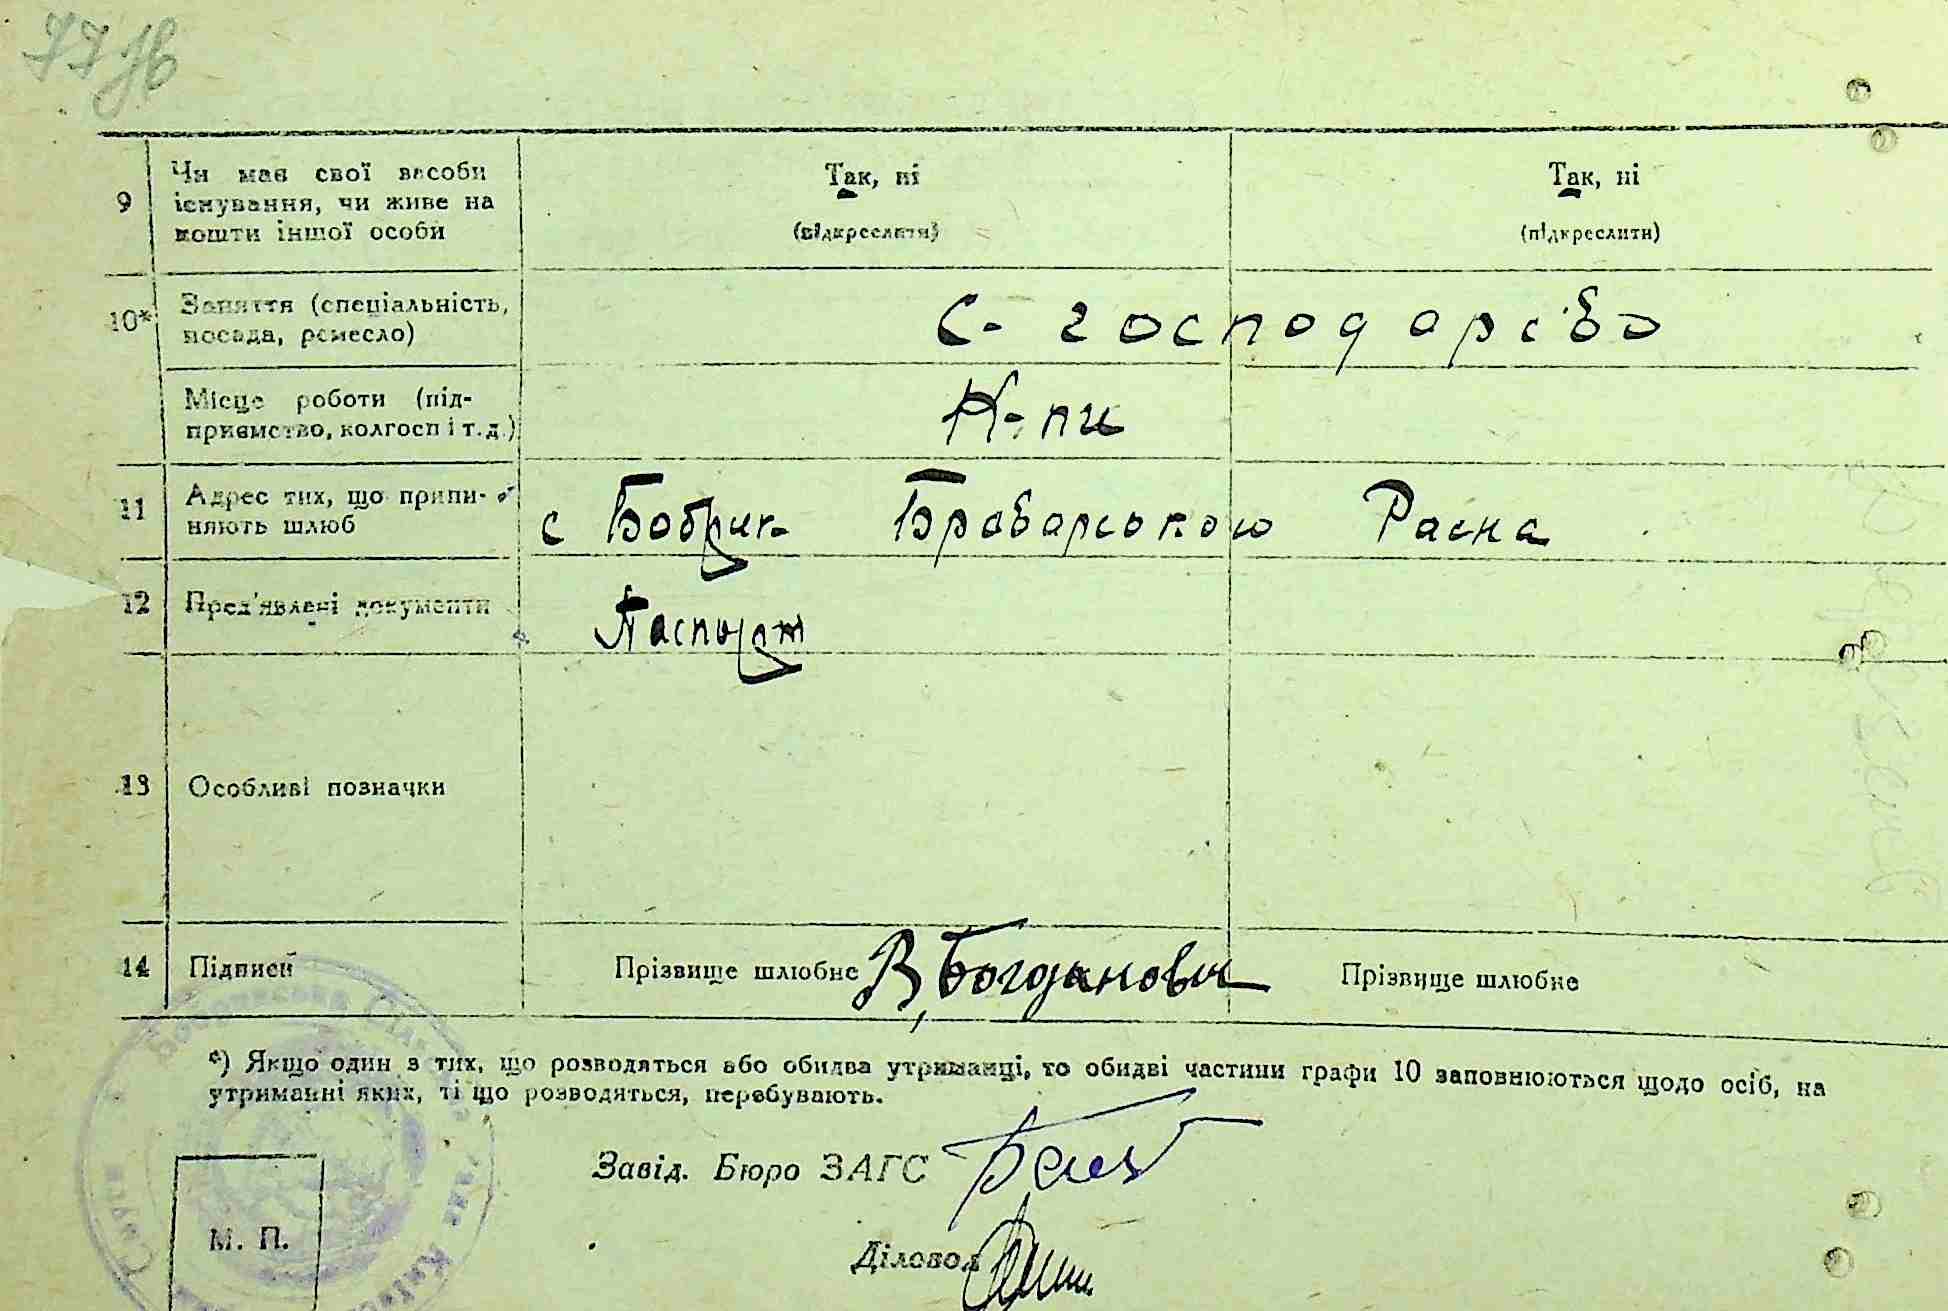 77
9 Чи має свої засоби
існування, чи живе на
кошти іншої особи
Так, ні
(підкреслити)
Так, ні
(підкреслити)
10* Заняття (спеціальність,
посада, ремесло)
С-господарсво
Місце роботи (під-
приємство, колгосп і т. д.)
11 Адрес тих, що припи-
няють шлюб
с Бобрик Броварського Раена
12 Пред'явлені документи
Паспорт
13 Особливі позначки
14 Підписи
Прізвище шлюбне В, Богданович
Прізвище шлюбне
*) Якщо один з тих, що розводяться або обидва утриманці, то обидві частини графи 10 заповнюються щодо осіб, на
утриманні яких, ті що розводяться, перебувають.
Завід. Бюро ЗАГС
Діловод
М. П.